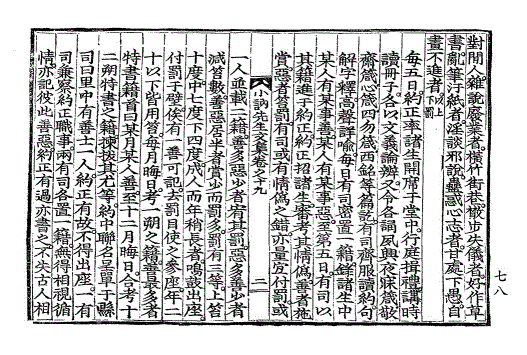 對閒人雜說廢業者橫竹街巷散步失儀者好作草
書亂筆汙紙者淫談邪說蠱惑心志者甘處下愚自
畫不進者以上下罰
每五日約正率諸生開席子堂中行庭揖禮講時
讀冊子各以文義論辨又令各誦夙興夜寐箴敬
齋箴心箴四勿箴西銘等篇訖有司齊服讀約句
解字釋高聲詳喩每日有司密置一籍錄諸生中
某人有某事善某人有某事惡至第五日有司以
其籍進于約正約正招諸生審考其情僞善者施
賞惡者笞罰有司或有情僞之錯亦量宜付罰或
小訥先生文集卷之十九
二
一人並載二籍善多惡少者宥其罰惡多善少者
減笞數善惡居半者賞少而罰多罰有三等上笞
十度中七度下四度成人而年稍長者鳴鼓出座
付罰于壁俟有一善可記去罰目使之參座年二
十以下皆用笞每月晦日考一朔之籍善最多者
特書籍首曰某月某人善至十二月晦日合考十
二朔特書之籍揀拔其尤等約中聯名呈單于縣
司曰里中有善士一人約正有故不得出座一有
司兼察約正職事兩有司各置一籍無得相視循
情亦記彼此善惡約正有過亦書之不失古人相
七八